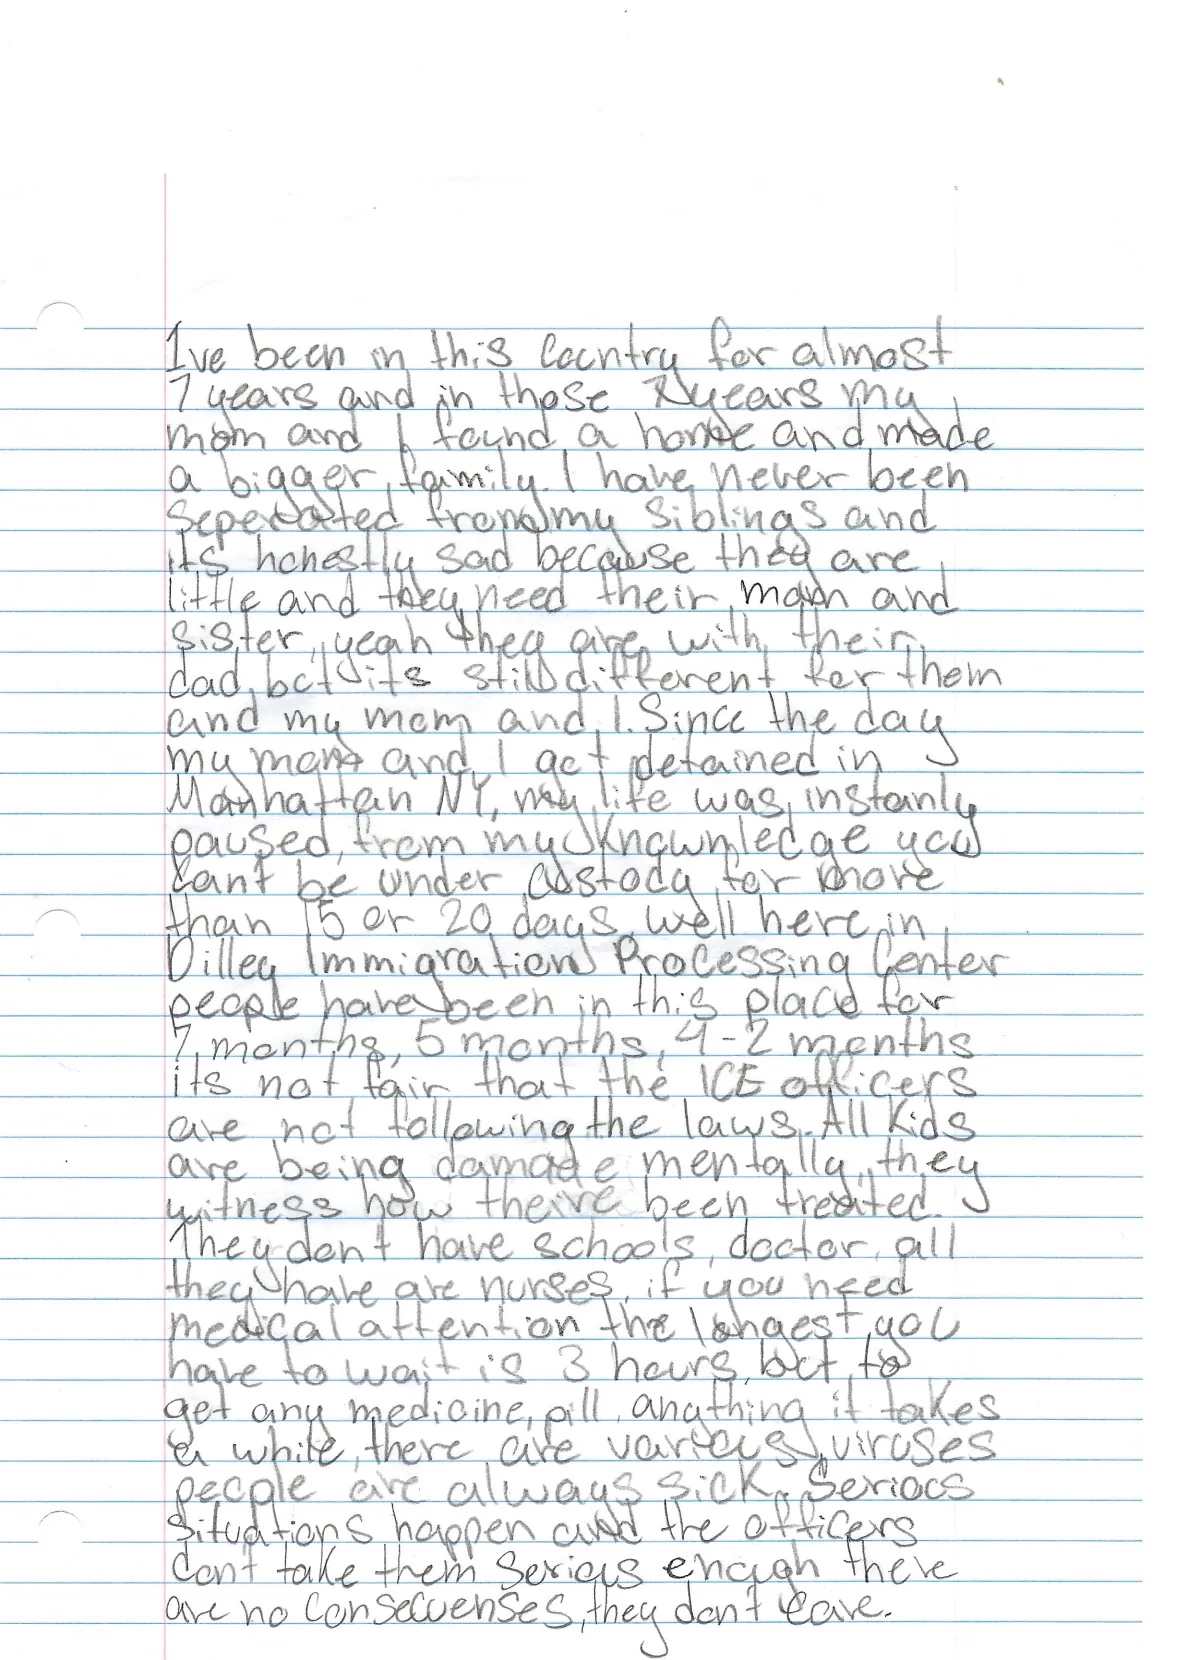 Ive been in this Country for almost
7 years and in those 7 years my
mom and I found a home and made
a bigger family. I have never been
seperated from my siblings and
its honestly sad because they are
little and they need their mom and
sister, yeah they are with their
dad, but its still different for them
and my mom and I. Since the day
my mom and I got detained in
Manhattan NY, my life was instanly
paused, from my knownledge you
cant be under custody for more
than 15 or 20 days, well here in
Dilley Immigration Processing Center
people have been in this place for
7 months, 5 months, 4-2 months
its not fair that the ICE officers
are not following the laws. All Kids
are being damade mentally, they
witness how theire been treated.
They don't have schools, doctor, all
they have are nurses, if you need
medical attention the longest you
have to wait is 3 hours, but to
get any medicine, pill, anything it takes
a while, there are various viruses
people are always sick. Serious
situations happen and the officers
dont take them serious enough there
are no consecuenses, they don't care.